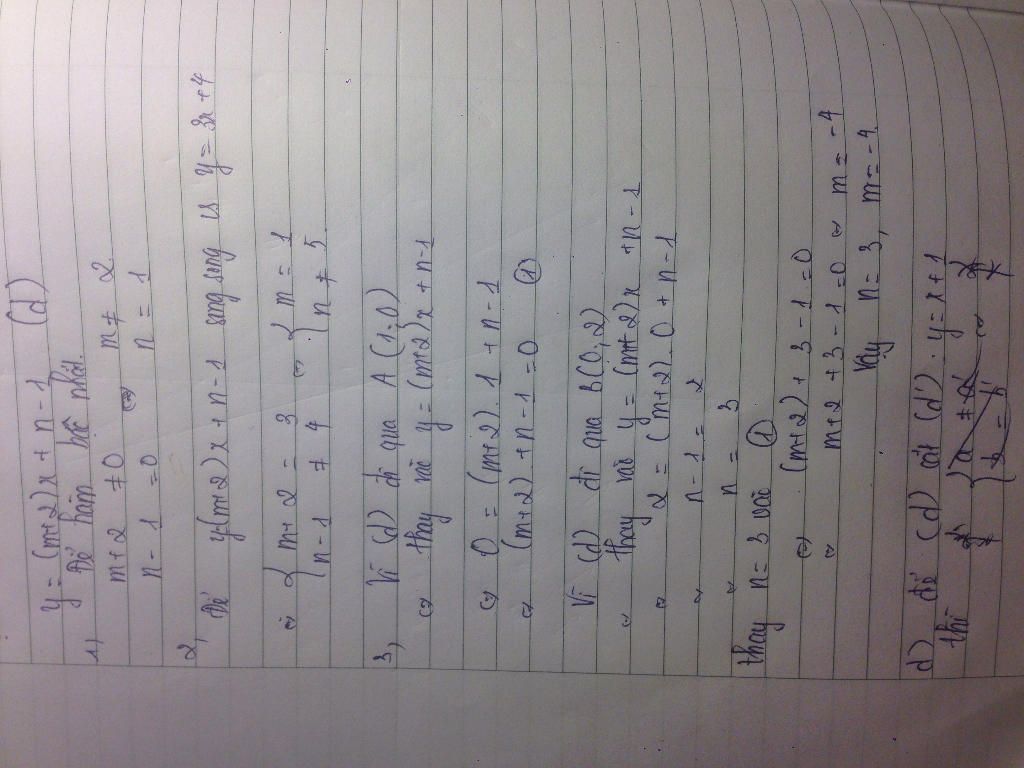 y = (m+2)x + n - 1 (d)
1) Để hàm bậc nhất.
m+2 ≠ 0 ⇔ m ≠ 2
n - 1 = 0 n = 1
2, Để y=(m+2)x + n - 1 song song vs y = 3x + 4
⇔ { m+2 = 3 ⇔ { m = 1
n - 1 ≠ 4 n ≠ 5
3, Vì (d) đi qua A (1;0)
⇔ thay vào y = (m+2)x + n-1
⇔ 0 = (m+2).1 + n - 1
⇔ (m+2) + n - 1 = 0 ①
Vì (d) đi qua B(0,2)
⇔ thay vào y = (m+2)x + n - 1
⇔ 2 = (m+2).0 + n - 1
⇔ n - 1 = 2
⇔ n = 3
thay n = 3 vào ①
⇔ (m+2) + 3 - 1 = 0
⇔ m+2 + 3 - 1 = 0 ⇔ m = -4
Vậy n = 3, m = -4
d) để (d) cắt (d'). y = x + 1
thì { a ≠ a' ⇔
b = b'